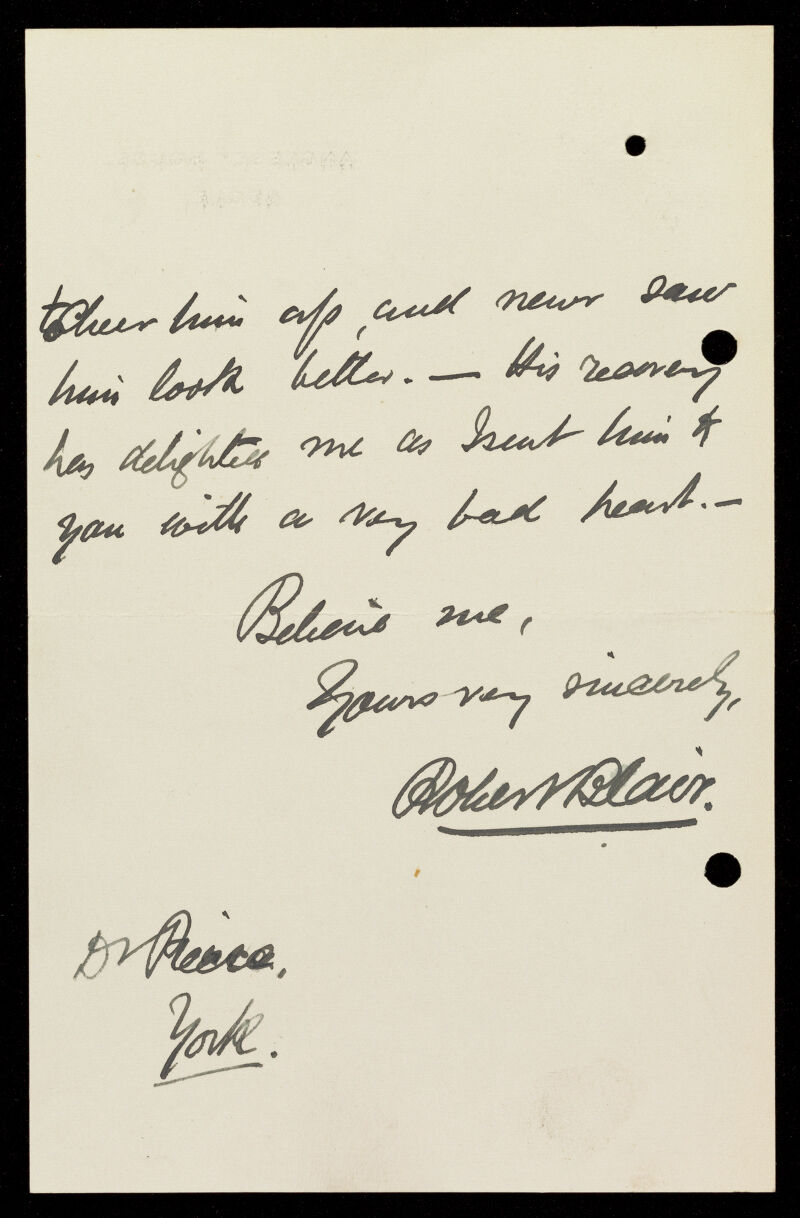 to cheer him up, and never saw
him look better. — His recovery
has delighted me as I sent him to
you with a very bad heart. —
Believe me,
Yours very sincerely,
Robert Blair.
Dr Pierce,
York.